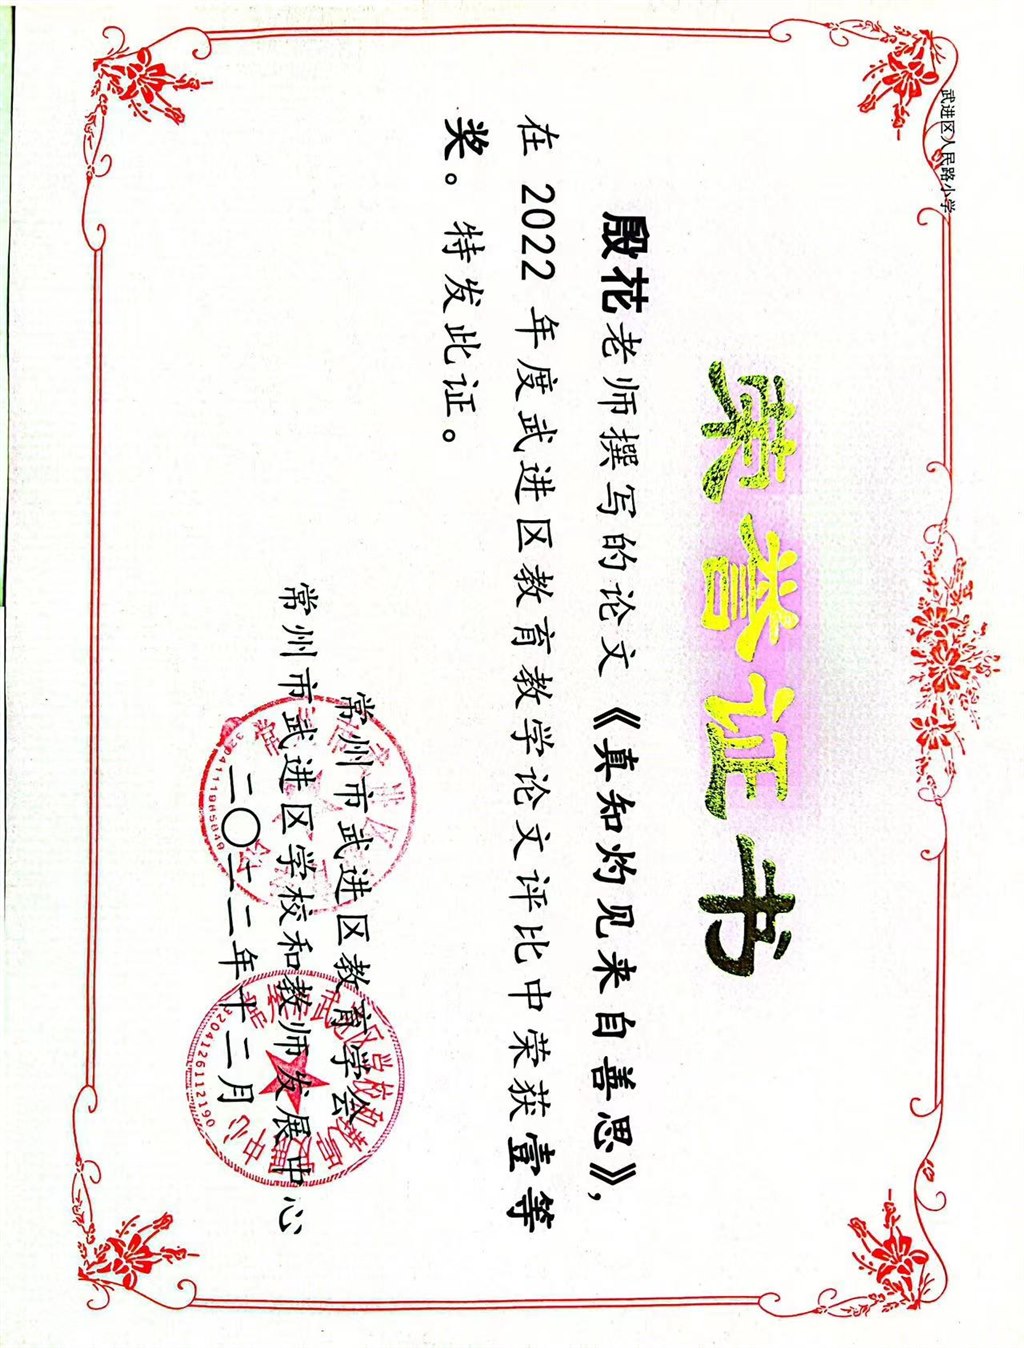 武进区人民路小学
荣誉证书
殷花老师撰写的论文《真知灼见来自善思》，
在 2022 年度武进区教育教学论文评比中荣获壹等
奖。特发此证。
常州市武进区教育学会
常州市武进区学校和教师发展中心
二〇二二年十二月
3204126112190